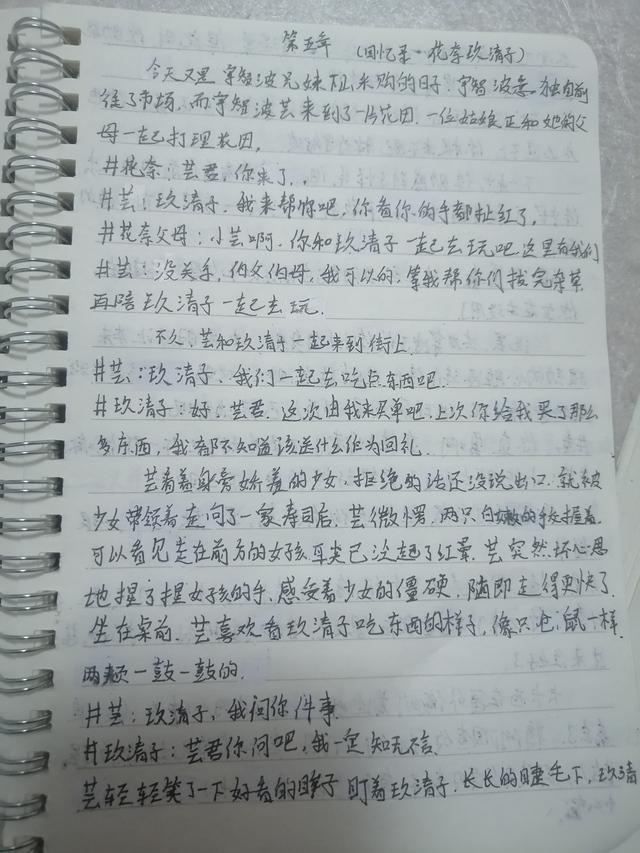 第五年 (回忆录·花奈玖清子)
今天又是宇智波兄妹俩采购的日子.宇智波 独自前
往了市场.而宇智波芸来到了一片花田.一位姑娘正和她的父
母一起打理花田,
#花奈:芸君,你来了,.
#芸:玖清子.我来帮你吧,你看你的手都扯红了,
#花奈父母:小芸啊.你和玖清子一起去玩吧.这里有我们
#芸:没关系,伯父伯母,我可以的,等我帮你们拔完杂草
再陪玖清子一起去玩.
不久,芸和玖清子一起来到街上.
#芸:玖清子、我们一起去吃点东西吧.
#玖清子:好、芸君.这次由我来买单吧,上次你给我买了那么
多东西,我都不知道该送什么作为回礼.
芸看着身旁娇羞的少女.拒绝的话还没说出口.就被
少女带领着走向了一家寿司店.芸微愣.两只白嫩的手交握着.
可以看见走在前方的女孩耳尖已泛起了红晕.芸突然坏心思
地捏了捏女孩的手.感受着少女的僵硬.随即走得更快了.
坐在桌前.芸喜欢看玖清子吃东西的样子,像只仓鼠一样.
两颊一鼓一鼓的.
#芸:玖清子,我问你件事.
#玖清子:芸君你问吧,我一定知无不言.
芸轻轻笑了一下好看的眸子盯着玖清子.长长的睫毛下,玖清